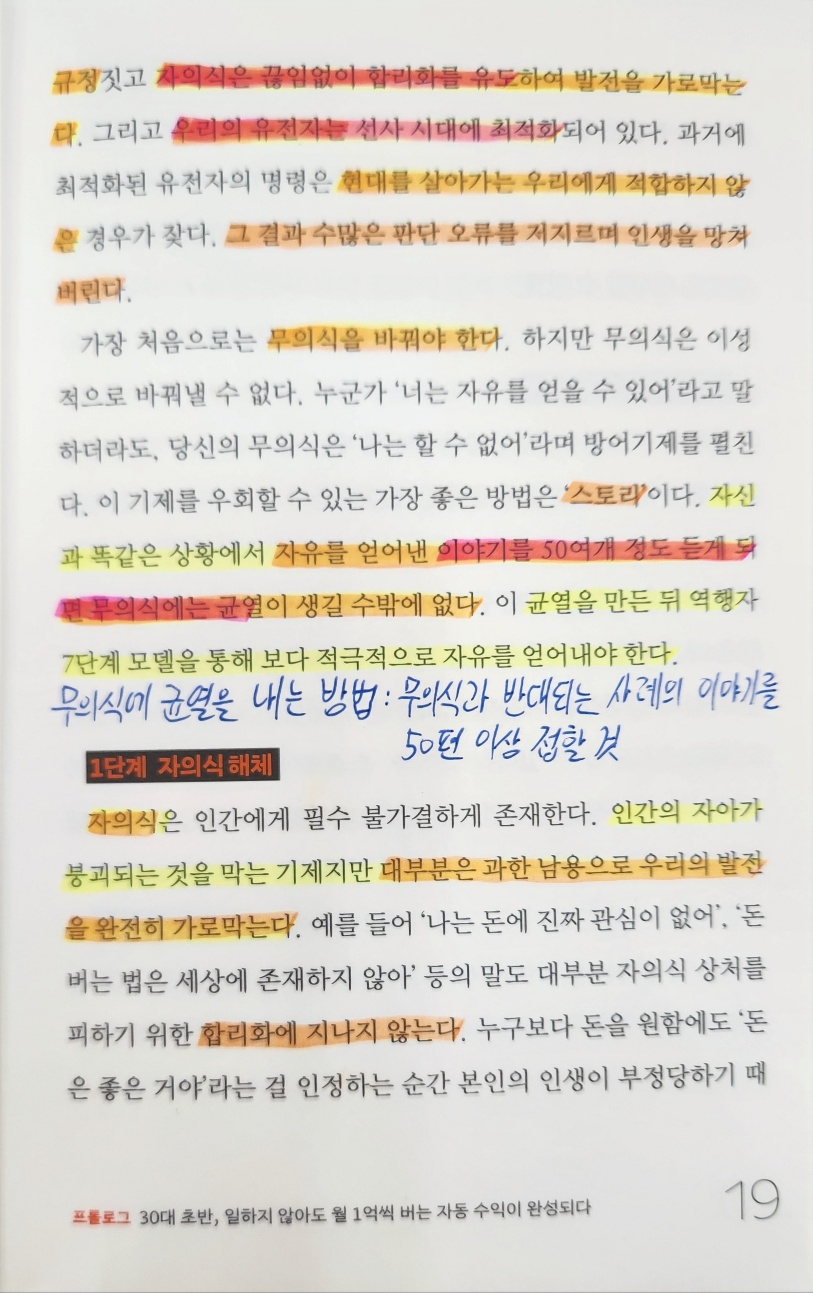 규정짓고 자의식은 끊임없이 합리화를 유도하여 발전을 가로막는
다. 그리고 우리의 유전자는 선사 시대에 최적화되어 있다. 과거에
최적화된 유전자의 명령은 현대를 살아가는 우리에게 적합하지 않
은 경우가 잦다. 그 결과 수많은 판단 오류를 저지르며 인생을 망쳐
버린다.
가장 처음으로는 무의식을 바꿔야 한다. 하지만 무의식은 이성
적으로 바꿔낼 수 없다. 누군가 ‘너는 자유를 얻을 수 있어’라고 말
하더라도, 당신의 무의식은 ‘나는 할 수 없어’라며 방어기제를 펼친
다. 이 기제를 우회할 수 있는 가장 좋은 방법은 ‘스토리’이다. 자신
과 똑같은 상황에서 자유를 얻어낸 이야기를 50여개 정도 듣게 되
면 무의식에는 균열이 생길 수밖에 없다. 이 균열을 만든 뒤 역행자
7단계 모델을 통해 보다 적극적으로 자유를 얻어내야 한다.
무의식에 균열을 내는 방법 : 무의식과 반대되는 사례의 이야기를
50편 이상 접할 것
1단계 자의식 해체
자의식은 인간에게 필수 불가결하게 존재한다. 인간의 자아가
붕괴되는 것을 막는 기제지만 대부분은 과한 남용으로 우리의 발전
을 완전히 가로막는다. 예를 들어 ‘나는 돈에 진짜 관심이 없어’, ‘돈
버는 법은 세상에 존재하지 않아’ 등의 말도 대부분 자의식 상처를
피하기 위한 합리화에 지나지 않는다. 누구보다 돈을 원함에도 ‘돈
은 좋은 거야’라는 걸 인정하는 순간 본인의 인생이 부정당하기 때
프롤로그 30대 초반, 일하지 않아도 월 1억씩 버는 자동 수익이 완성되다
19